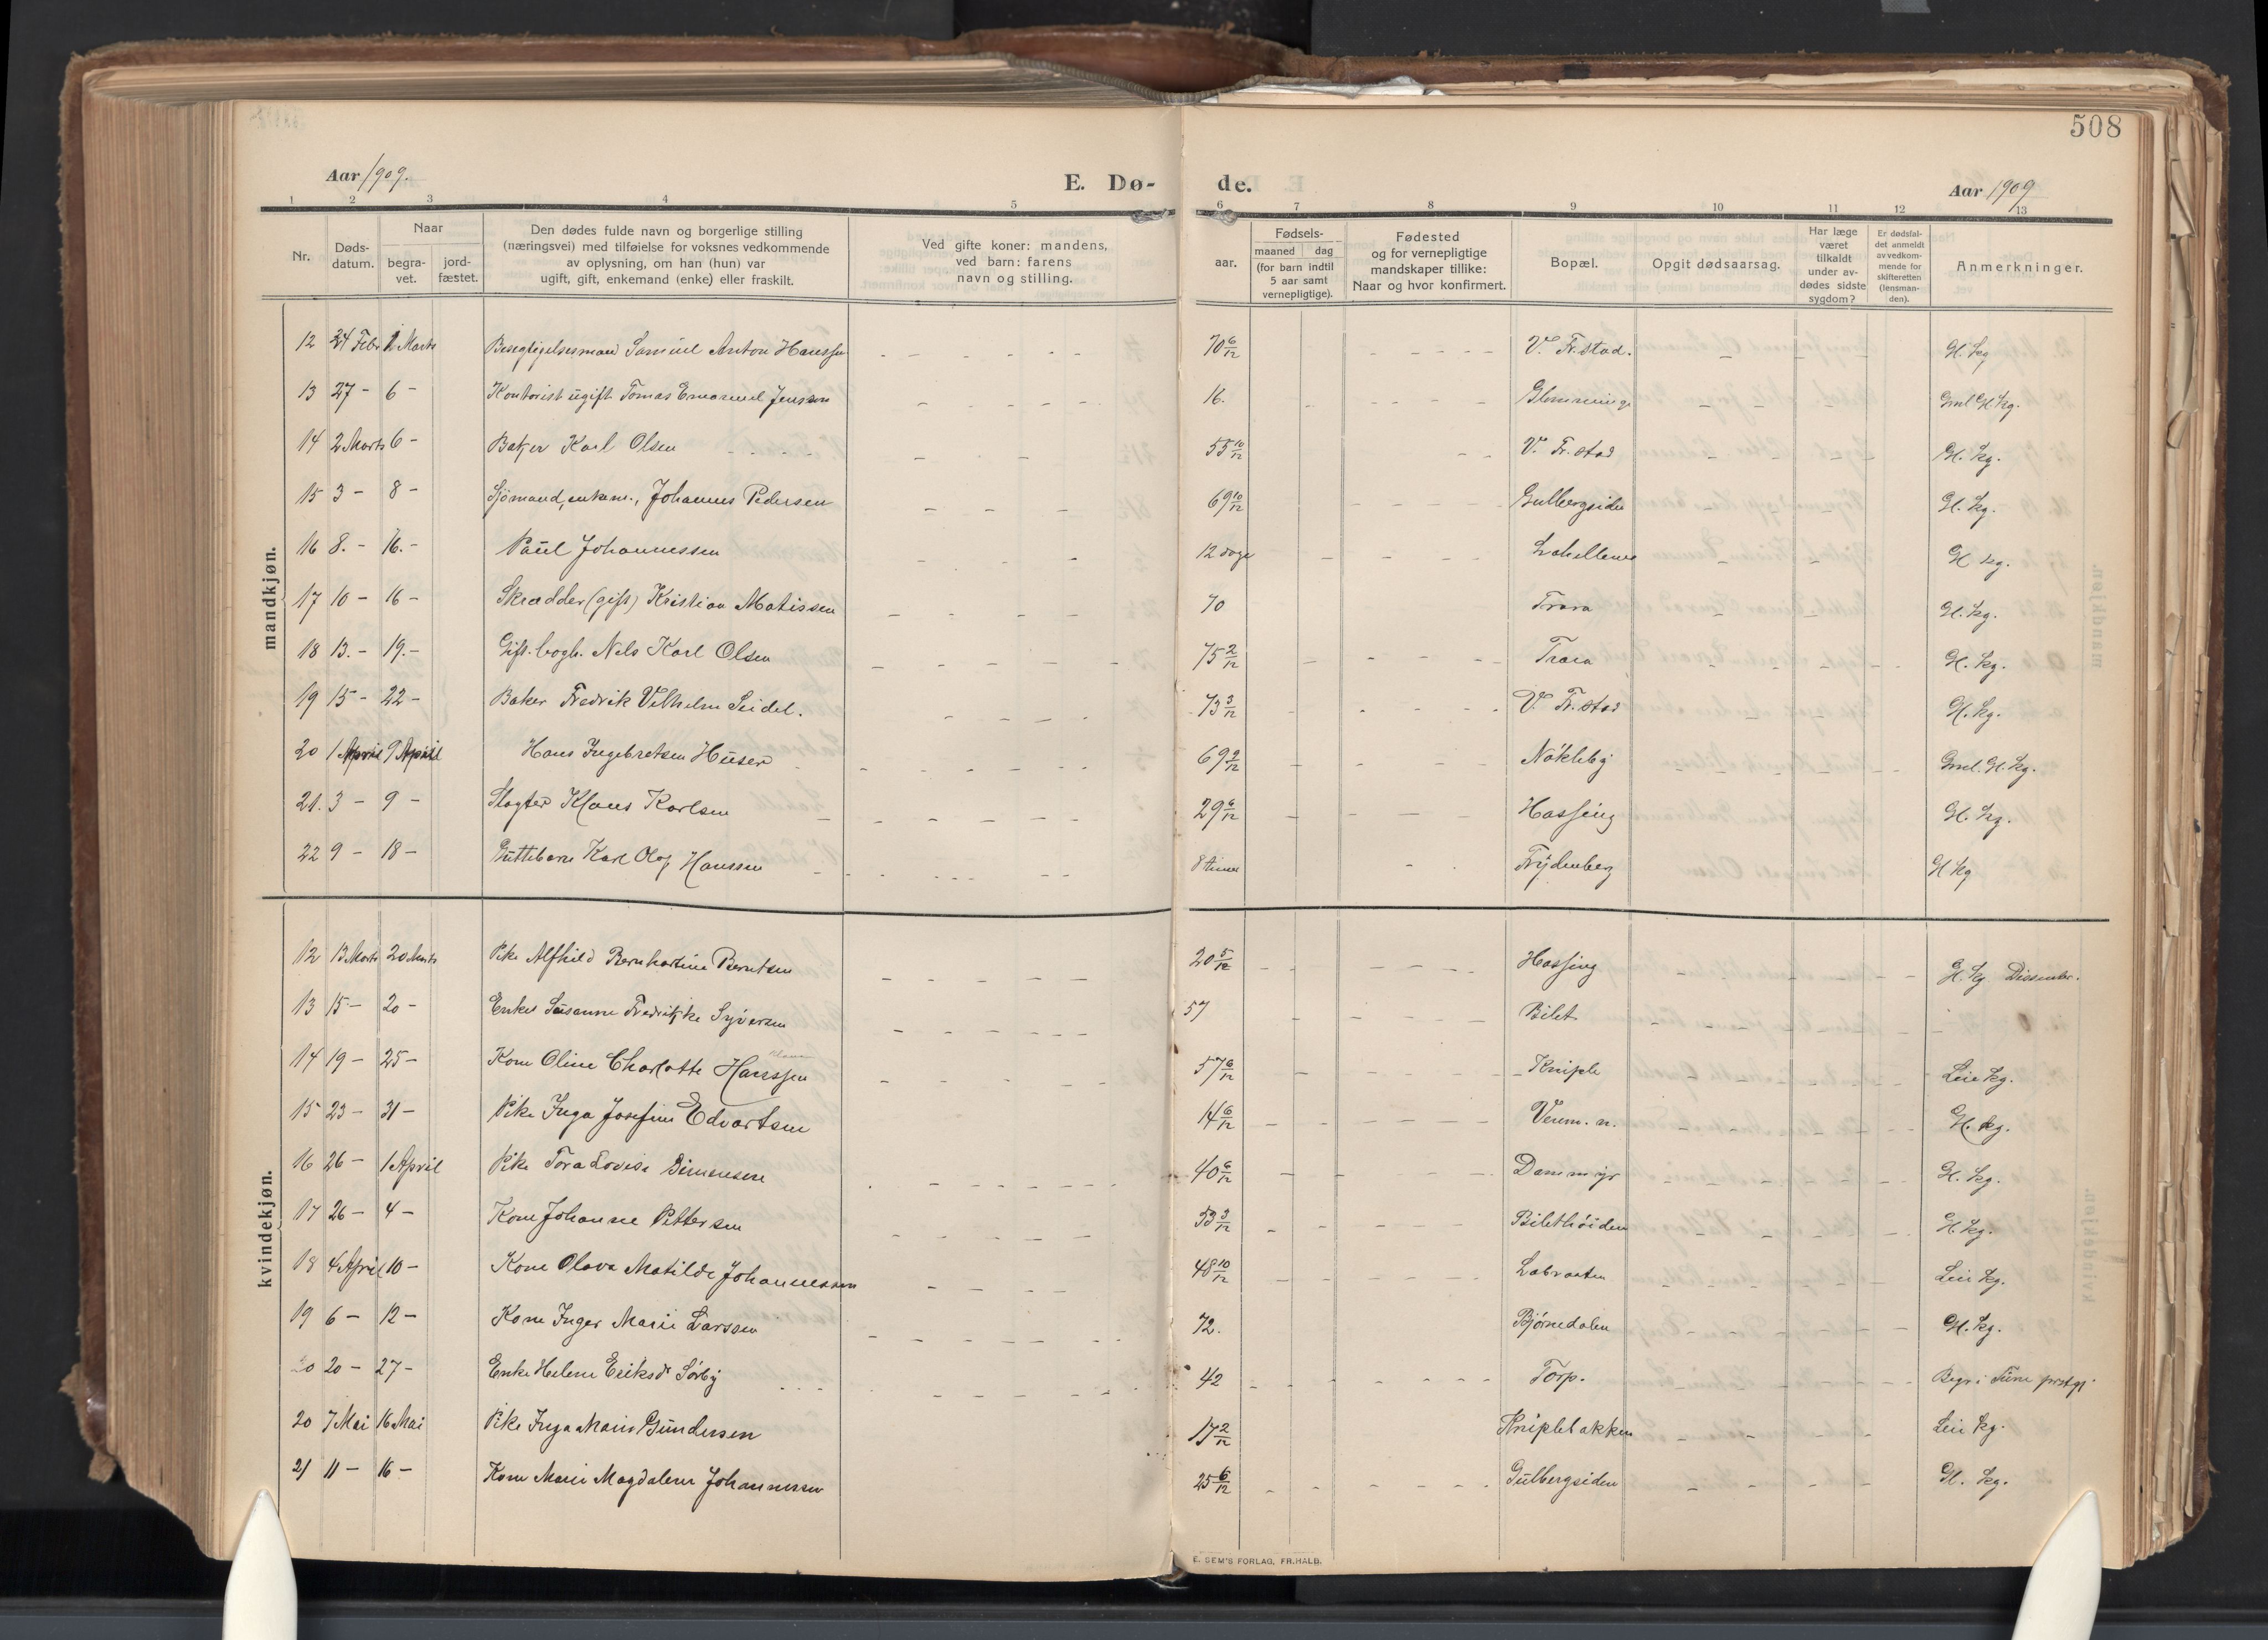 508
Aar 1909. E. Dø- de. Aar 1909
1 2 3 4 5 6 7 8 9 10 11 12 13
Nr.
Døds-
datum.
Naar
begra-
vet.
jord-
fæstet.
Den dødes fulde navn og borgerlige stilling
(næringsvei) med tilføielse for voksnes vedkommende
av oplysning, om han (hun) var
ugift, gift, enkemand (enke) eller fraskilt.
Ved gifte koner: mandens,
ved barn: farens
navn og stilling.
aar.
Fødsels-
maaned dag
(for barn indtil
5 aar samt
vernepligtige).
Fødested
og for vernepligtige
mandskaper tillike:
Naar og hvor konfirmert.
Bopæl.
Opgit dødsaarsag.
Har læge
været
tilkaldt
under av-
dødes sidste
sygdom?
Er dødsfal-
det anmeldt
av vedkom-
mende for
skifteretten
(lensman-
den).
Anmerkninger.
mandkjøn.
12 24 Febr 1 Marts Besegtigelsesmand Samuel Anton Hanssen 70 6/12 V. Fr.stad. Gl. kg
13 27 - 6 - Kontorist ugift Tomas Emanuel Jenssen 16. Glemminge Gml Gl. kg.
14 2 Marts 6 - Baker Karl Olsen 55 10/12 V. Fr.stad Gl. kg.
15 3 - 8 - Sjömand, enkem., Johannes Pedersen 69 10/12 Gulbergsiden Gl. kg.
16 8. - 16. - Paul Johannessen 12 dage Lahellene Gl kg.
17 10 - 16 - Skrædder (gift) Kristian Matissen 70 Trara Gl. kg.
18 13. - 19. - Gift. bogh. Nels Karl Olsen 75 2/12 Trara Gl. kg.
19 15 - 22 - Baker Fredrik Vilhelm Seidel. 73 3/12 V. Fr.stad Gl. kg.
20 1 April 9 April Hans Ingebretsen Huser 69 9/12 Nökleby Gml. Gl. kg.
21. 3 - 9 - Slagter Klaus Karlsen 29 6/12 Hassing Gl. kg.
22 9 - 18 - Guttebarn Karl Olaf Hanssen 8 timer Frydenberg Gl kg
kvindekjøn.
12 13 Marts 20 Marts Pike Alfhild Bernhardine Berntsen 20 5/12 Hassing Gl. kg Dissenter.
13 15 - 20 - Enke Susanne Fredrikke Syversen 57 Bilet
14 19 - 25 - Kone Oline Charlotte Hanssen 57 6/12 Kniple Leie kg.
15 23 - 31 - Pike Inga Josefine Edvartsen 14 6/12 Veum. n. Gl. kg.
16 26 - 1 April Pike Tora Lovise Simensen 40 6/12 Dammyr Gl. kg.
17 26 - 4 - Kone Johanne Pettersen 53 3/12 Bilethöiden Gl. kg.
18 4 April 10 - Kone Olava Matilde Johannessen 48 10/12 Labraaten Leie kg.
19 6 - 12 - Kone Inger Marie Larssen 72. Bjørnedalen Gl. kg.
20 20 - 27 - Enke Helene Eriksdr Sørby 42 Torp. Begr i Tune prstgj.
20 7 Mai 16 Mai Pike Inga Marie Gundersen 17 2/12 Kniplebakken Leie kg.
21 11 - 16 - Kone Marie Magdalene Johannessen 25 6/12 Gulbergsiden Gl. kg.
E. SEM'S FORLAG, FR.HALD.